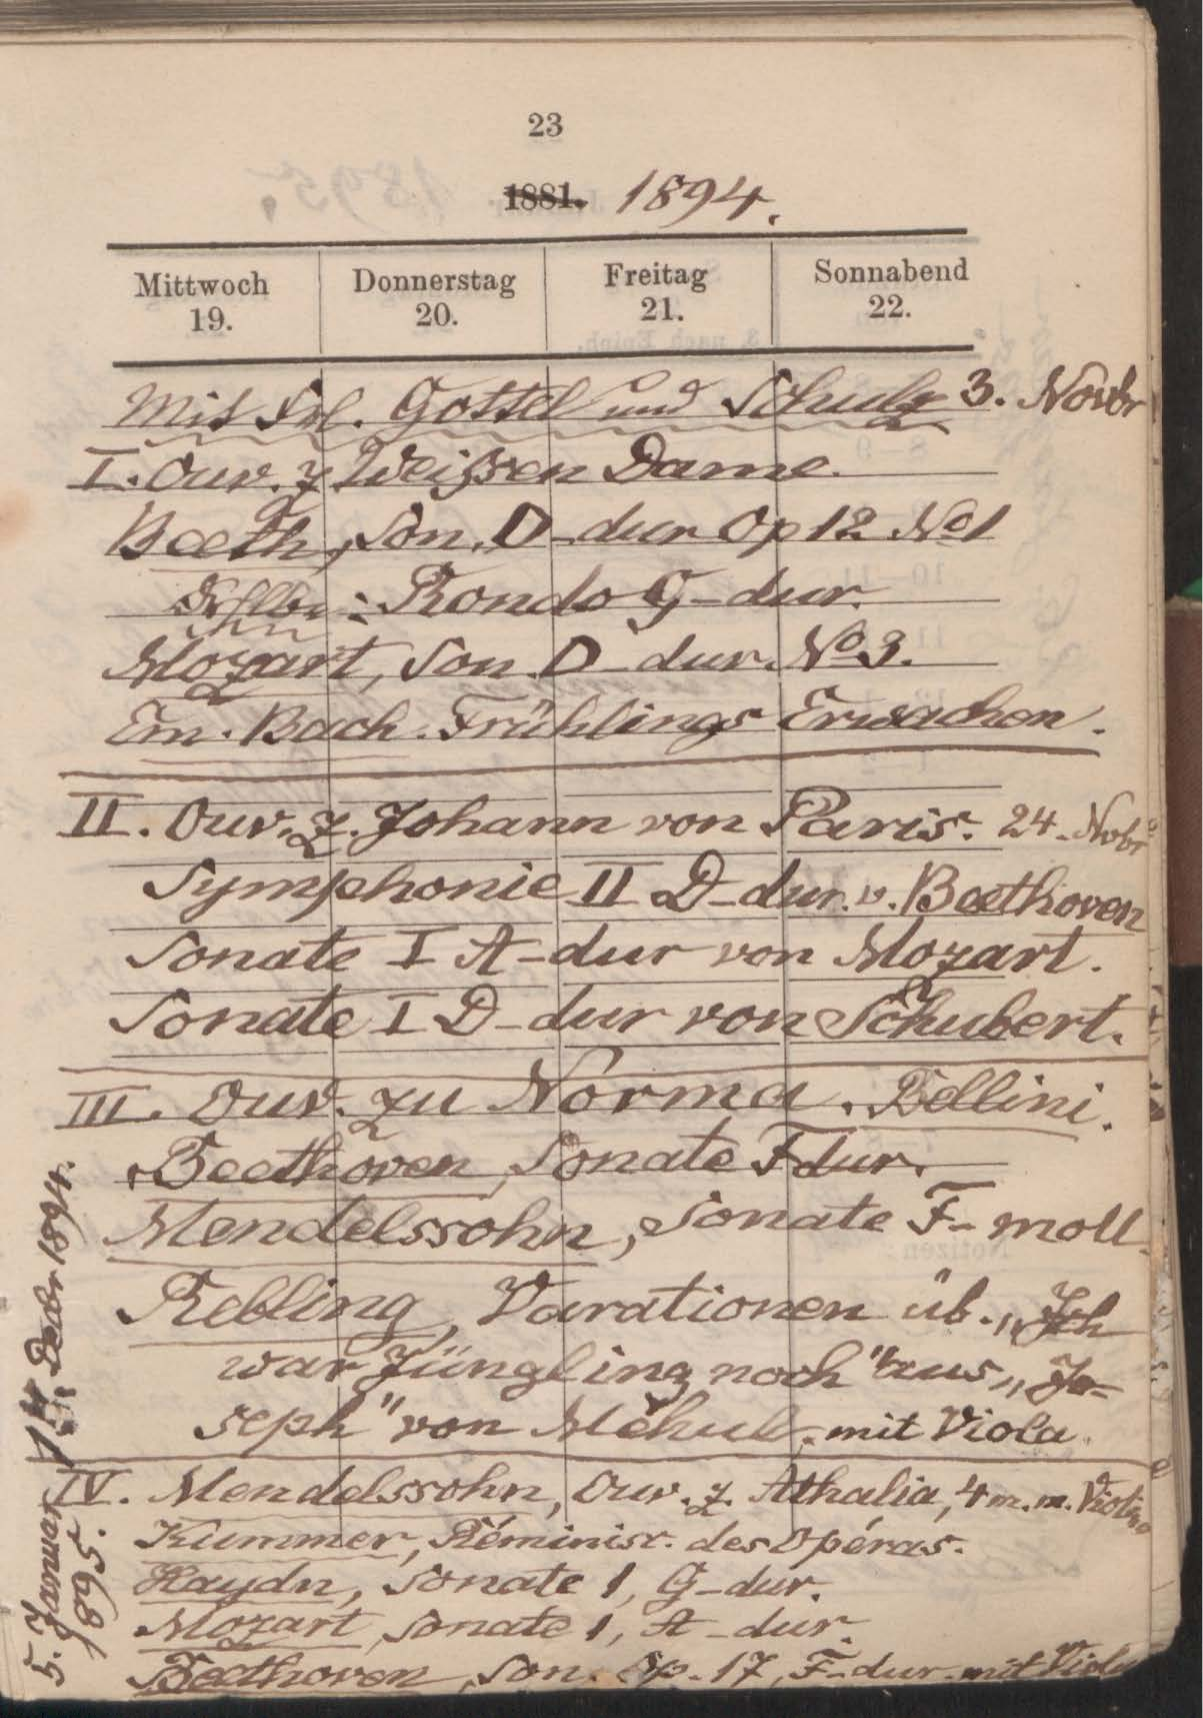 23
1881. 1894.
Mittwoch Donnerstag Freitag Sonnabend
19. 20. 21. 22.
Mit Frl. Gottel und Schulz 3. Novbr
I. Ouv. z Weißen Dame.
Beeth, Son. D-dur Op 12 No 1
: Rondo G-dur.
Mozart, Son. D-dur. No 3.
Em. Bach. Frühlings Erwachen.
II. Ouv. z. Johann von Paris. 24. Novbr
Symphonie II D-dur. v. Beethoven
Sonate I A-dur von Mozart.
Sonate I D-dur von Schubert.
III. Ouv. zu Norma. Bellini.
Beethoven, Sonate F dur.
Mendelssohn, Sonate F-moll.
Rebling, Varationen üb. „Ich
war Jüngling noch" aus „Jo-
seph" von Méhul, mit Viola.
14. Decbr 1894.
IV. Mendelssohn, Ouv. z. Athalia, 4 m. m. Violine
Kummer, Réminisc. des Opéras.
Haydn, Sonate 1, G-dur.
Mozart, Sonate 1, A-dur.
Beethoven, Son. Op. 17, F-dur. mit Viola
5. Januar
1895.